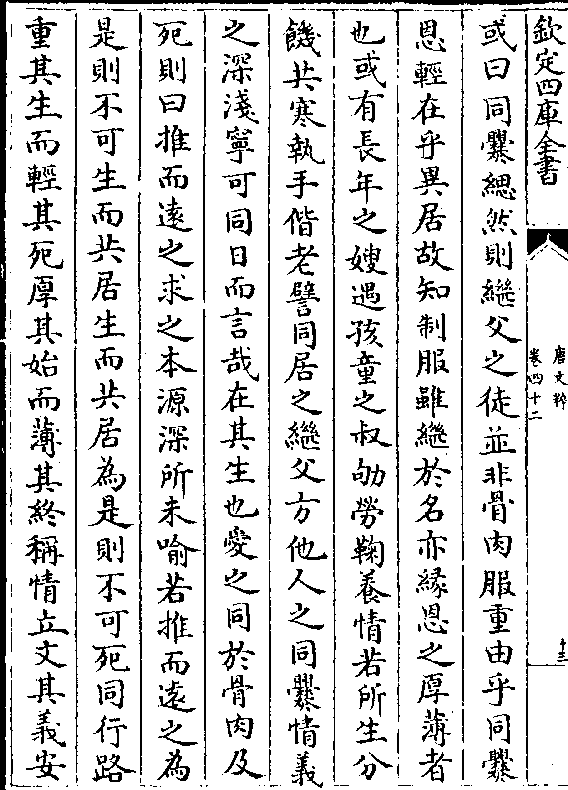 欽定四庫全書
唐文粹
卷四十二
十三
或曰同爨緦然則繼父之徒並非骨肉服重由乎同爨
恩輕在乎異居故知制服雖繼於名亦緣恩之厚薄者
也或有長年之嫂遇孩童之叔劬勞鞠養情若所生分
饑共寒執手偕老譬同居之繼父方他人之同爨情義
之深淺寧可同日而言哉在其生也愛之同於骨肉及
死則曰推而遠之求之本源深所未喻若推而遠之為
是則不可生而共居生而共居為是則不可死同行路
重其生而輕其死厚其始而薄其終稱情立文其義安